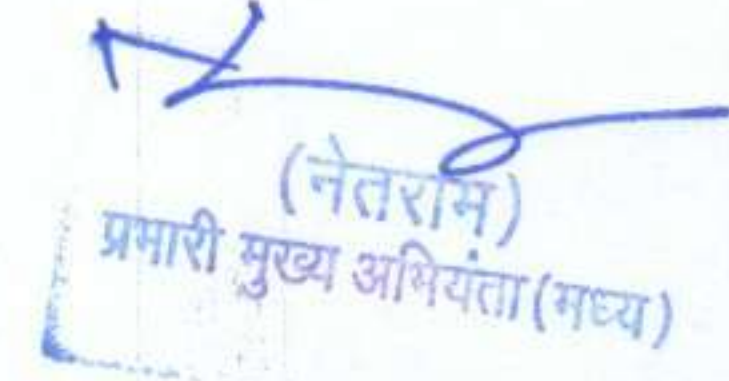 (नेतराम)
प्रभारी मुख्य अभियंता (मध्य)